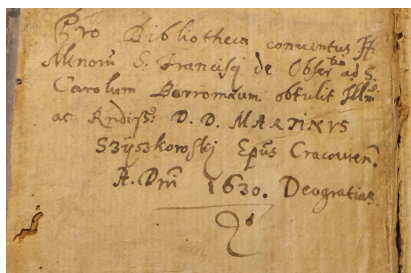 Pro Bibliotheca conventus FF.
Minorũ S. Francisci de Obser^tia ad S.
Carolum Borromæum obtulit Illm̃
ac Rndiss: D. D. MARTINVS
Szÿszkowskÿ Epũs Cracovien.
A. Dm̃ 1630. Deogratias.